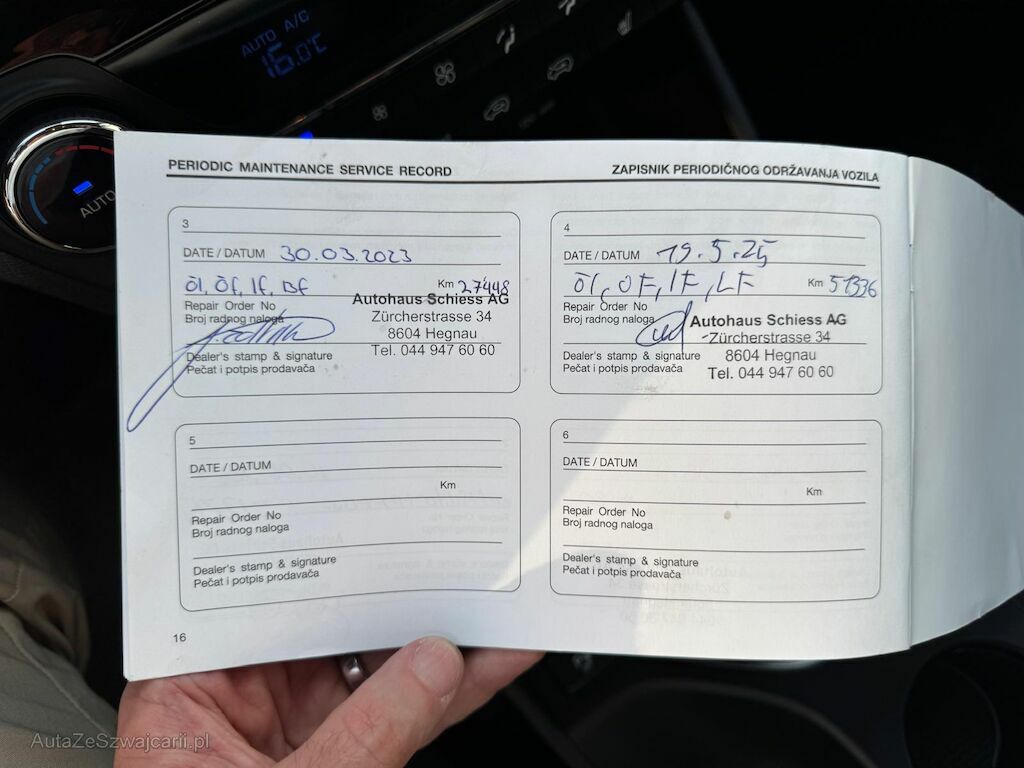 AUTO A/C
16.0°C
AUTO
PERIODIC MAINTENANCE SERVICE RECORD
ZAPISNIK PERIODIČNOG ODRŽAVANJA VOZILA
3
DATE / DATUM 30.03.2023
Öl, Öf, If, Bf Km 27448
Repair Order No
Broj radnog naloga
Autohaus Schiess AG
Zürcherstrasse 34
8604 Hegnau
Tel. 044 947 60 60
Dealer's stamp & signature
Pečat i potpis prodavača
4
DATE / DATUM 19.5.25
Öl, ÖF, IF, LF Km 51336
Repair Order No
Broj radnog naloga
Autohaus Schiess AG
Zürcherstrasse 34
8604 Hegnau
Tel. 044 947 60 60
Dealer's stamp & signature
Pečat i potpis prodavača
5
DATE / DATUM
Km
Repair Order No
Broj radnog naloga
Dealer's stamp & signature
Pečat i potpis prodavača
6
DATE / DATUM
Km
Repair Order No
Broj radnog naloga
Dealer's stamp & signature
Pečat i potpis prodavača
16
AutaZeSzwajcarii.pl